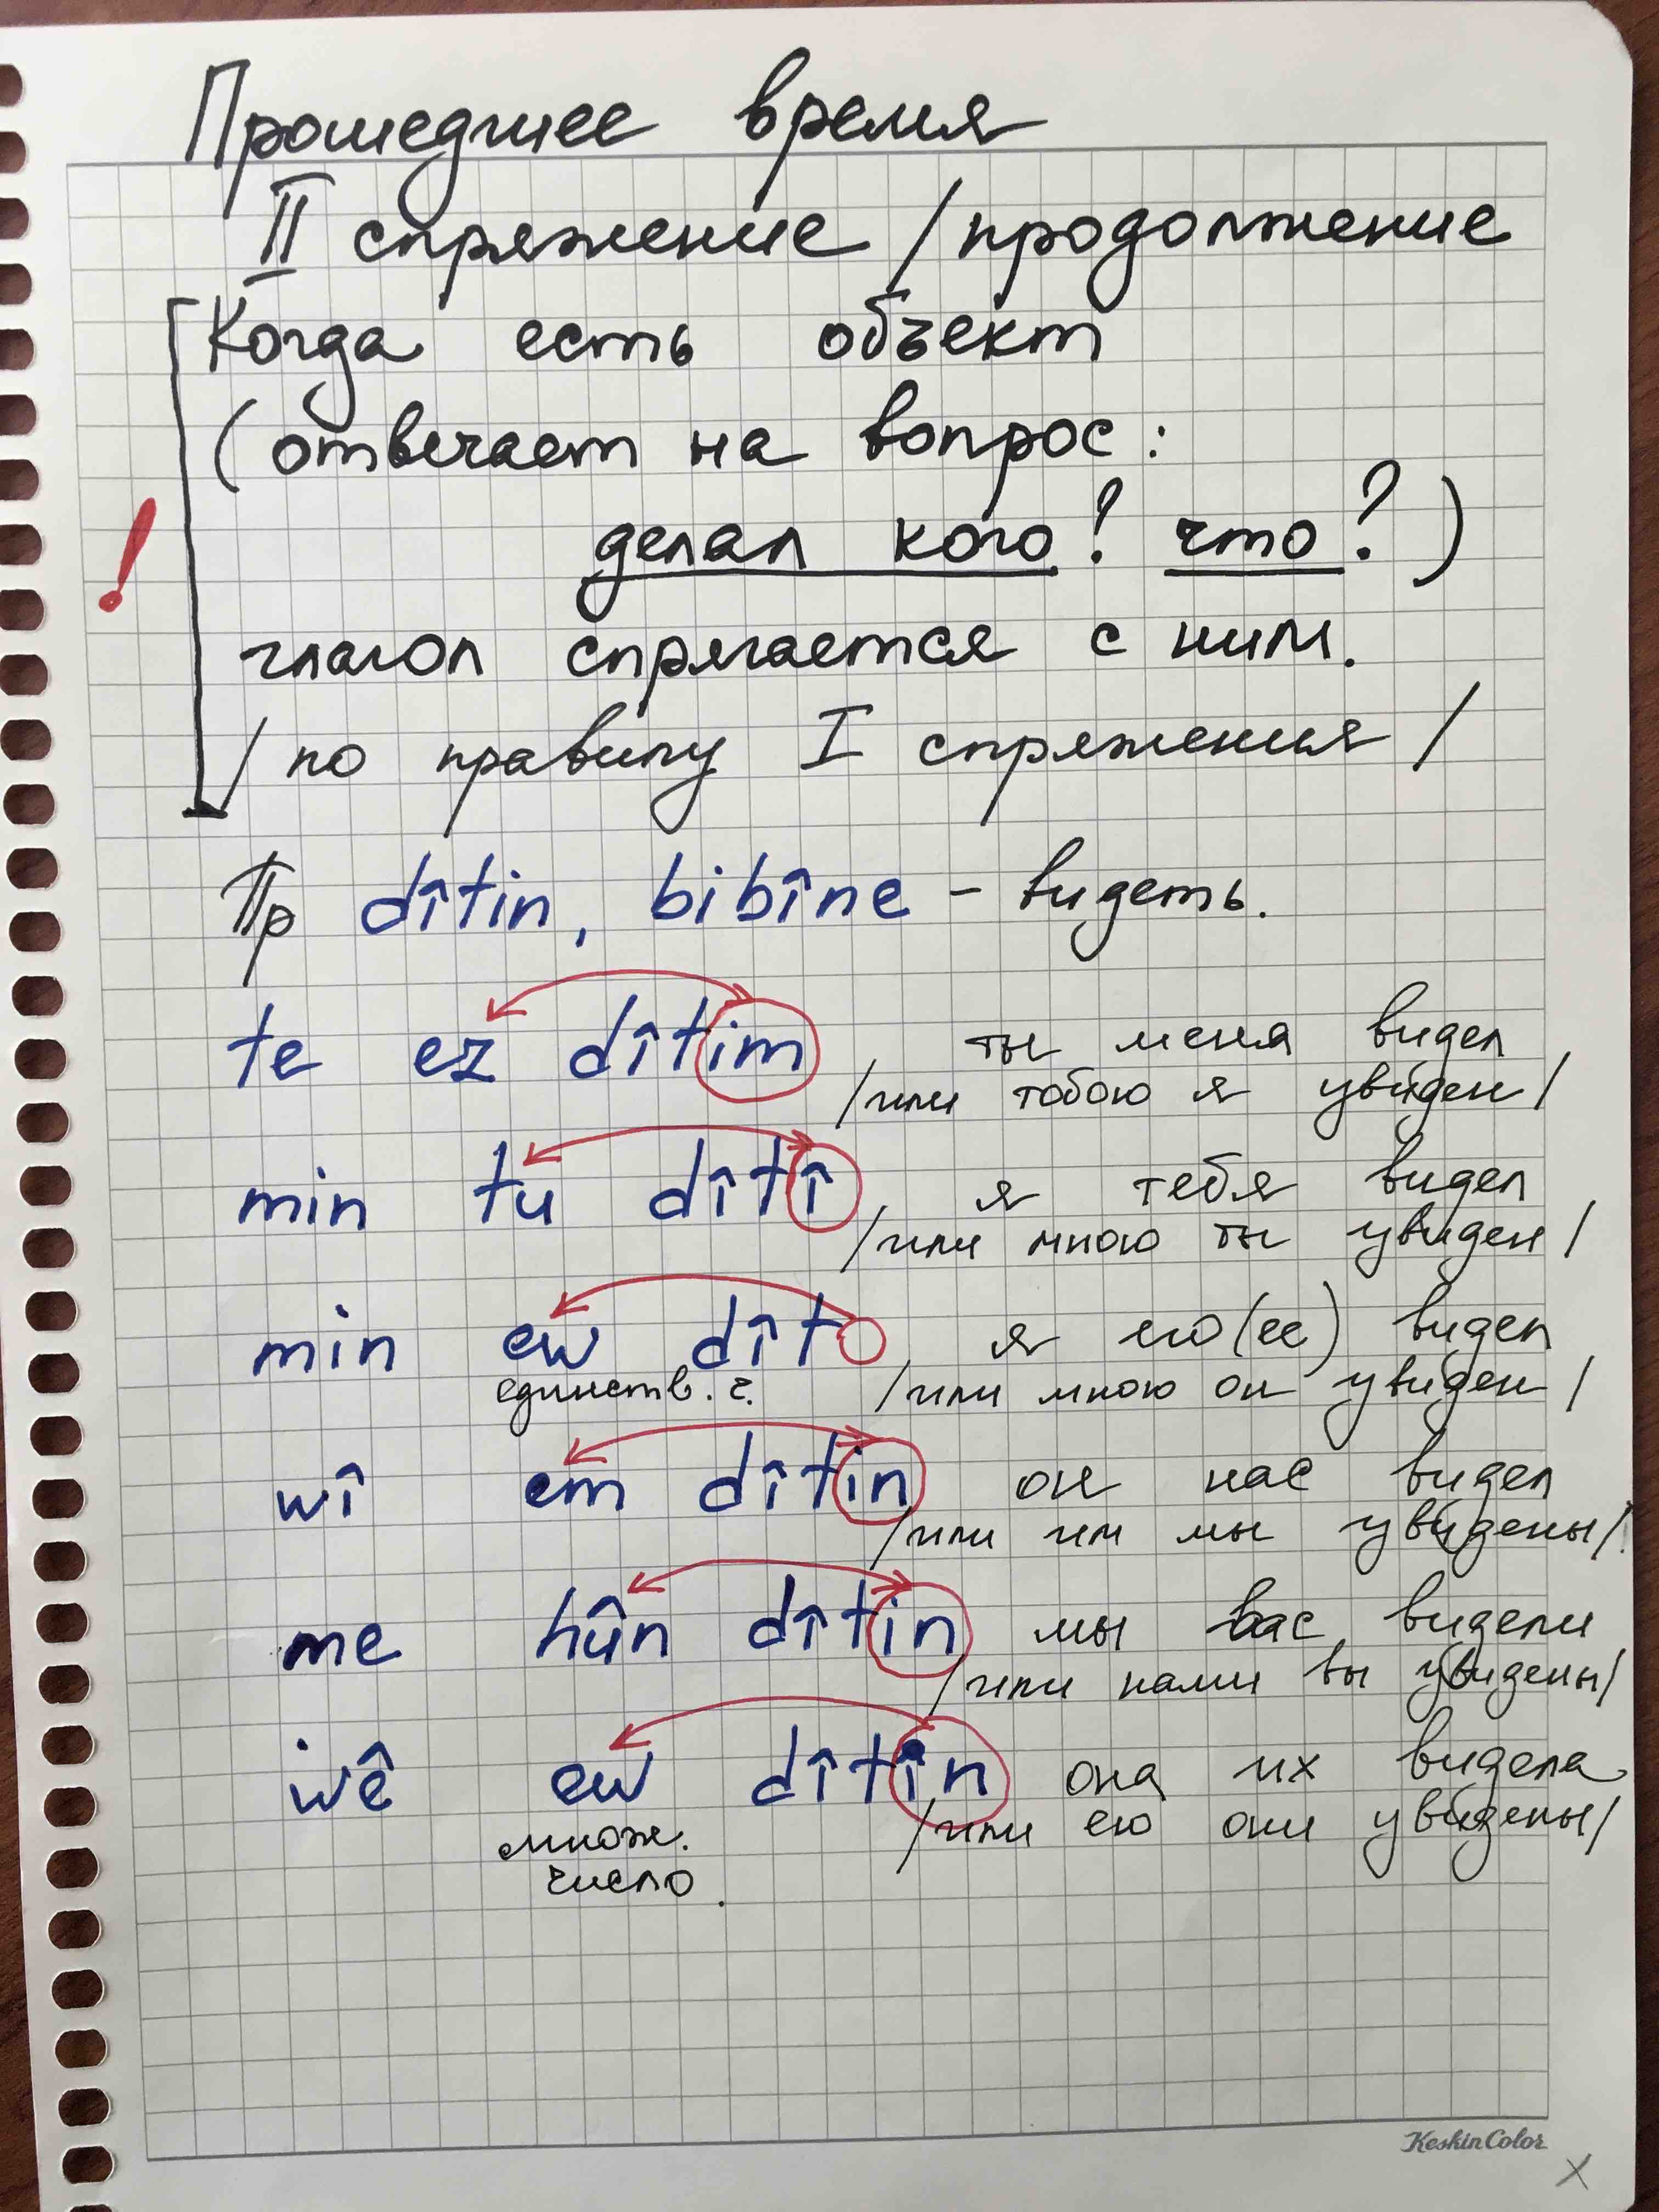 Прошедшее время
II спряжение / продолжение
Когда есть объект
(отвечает на вопрос:
делал кого? что?)
!
глагол спрягается с ним.
/ по правилу I спряжения /
Пр dîtin, bibîne - видеть.
te ez dîtim ты меня видел
/или тобою я увиден/
min tu dîtî я тебя видел
/или мною ты увиден/
min ew dît я его(ее) видел
единств. ч. /или мною он увиден/
wî em dîtin он нас видел
/или им мы увидены/
me hûn dîtin мы вас видели
/или нами вы увидены/
wê ew dîtin она их видела
/или ею они увидены/
множ.
число.
KeskinColor